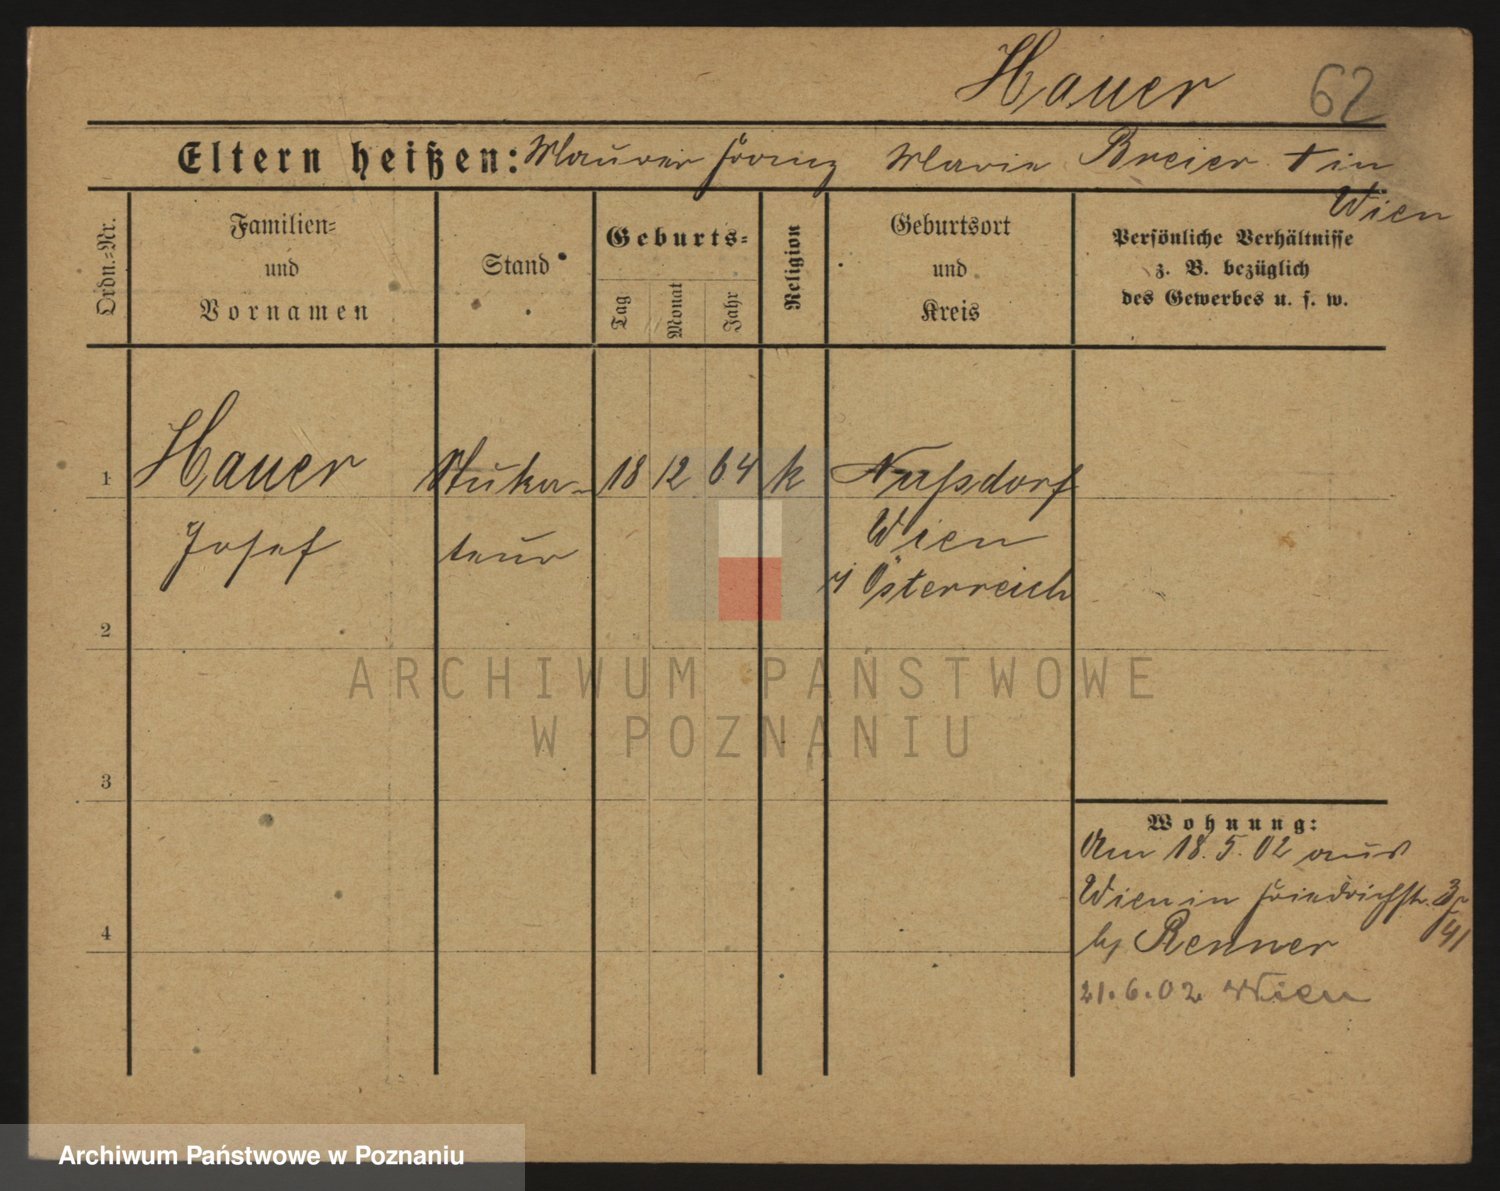 Hauer 62
Eltern heißen: Maurer Franz Marie Breier † in
Wien
Ordn.-Nr.
Familien-
und
Vornamen
Stand
Geburts-
Tag
Monat
Jahr
Religion
Geburtsort
und
Kreis
Persönliche Verhältnisse
z. B. bezüglich
des Gewerbes u. s. w.
1 Hauer Stuka- 18 12 64 k Nußdorf
Josef teur Wien
Österreich
2
3
4
Wohnung:
Am 18.5.02 aus
Wien in Friedrichstr.
bei Renner
21.6.02 Wien
ARCHIWUM PAŃSTWOWE
W POZNANIU
Archiwum Państwowe w Poznaniu